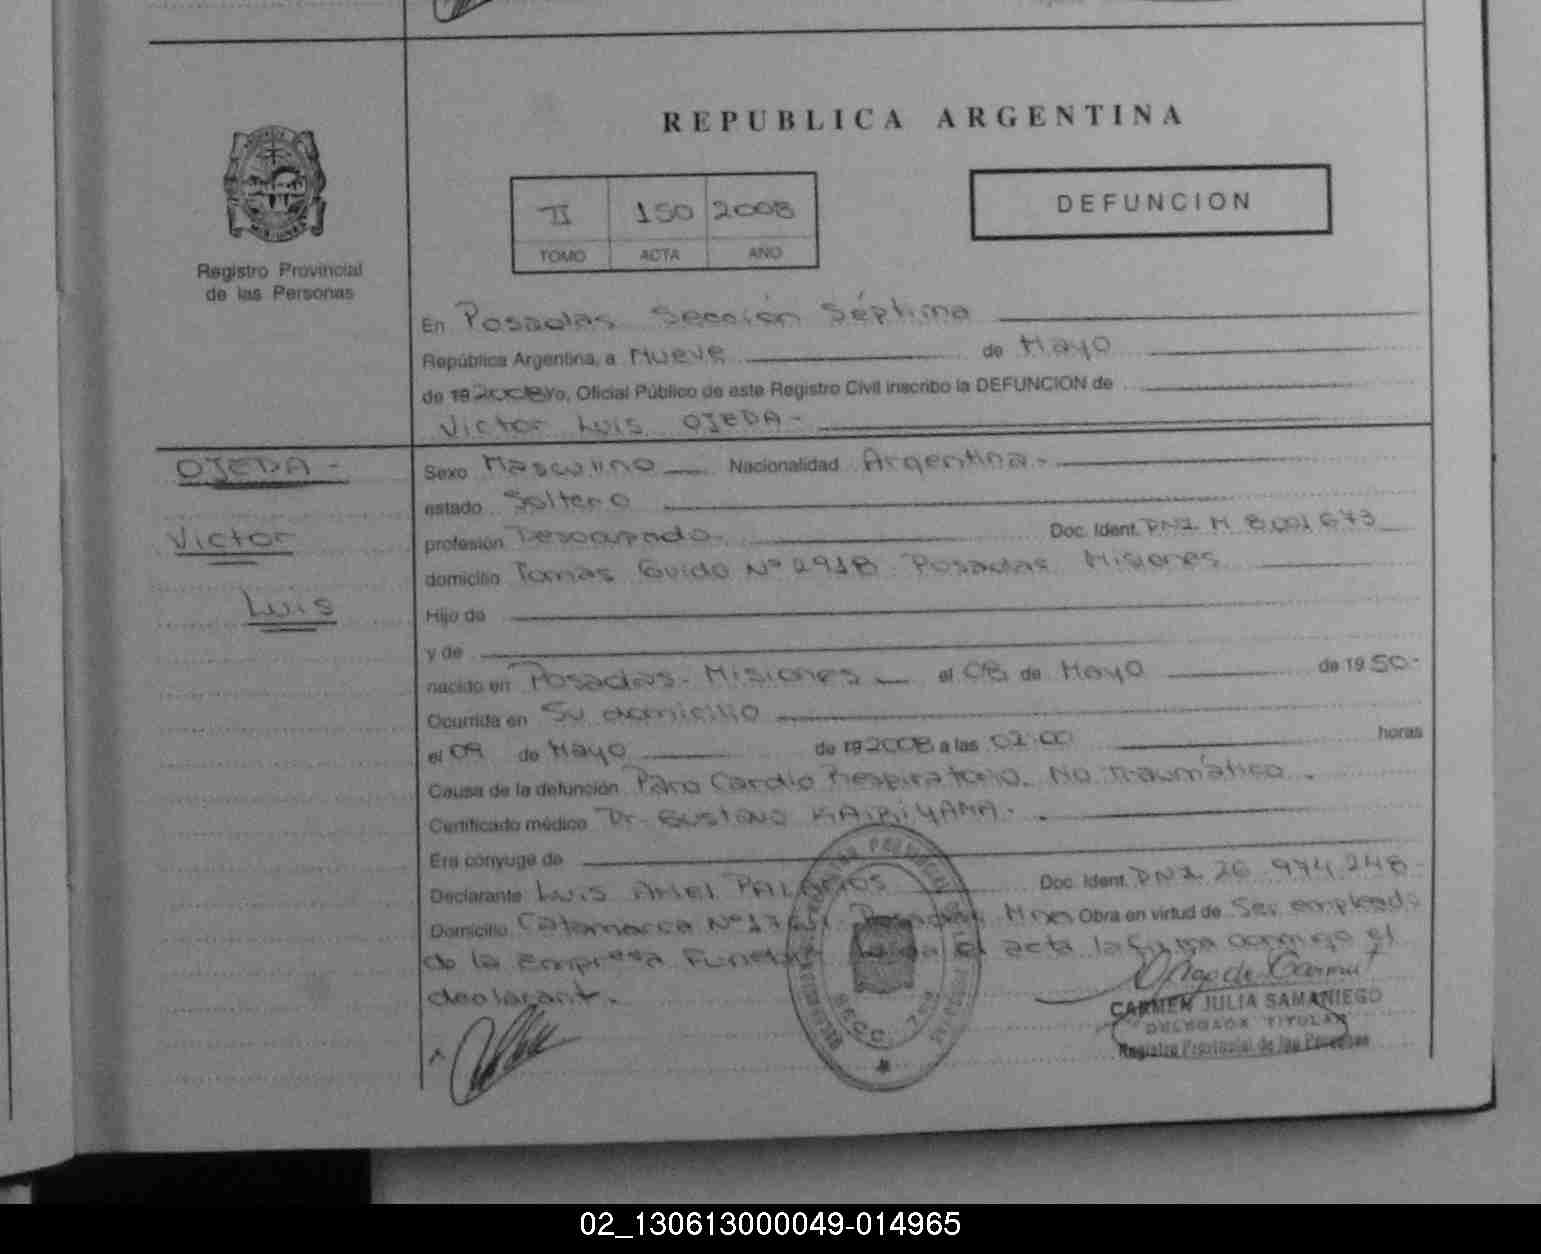 REPUBLICA ARGENTINA
Registro Provincial
de las Personas
II 150 2008
TOMO ACTA AÑO
DEFUNCION
En Posadas Sección Séptima
República Argentina, a Nueve de Mayo
de 19 2008 yo, Oficial Público de este Registro Civil inscribo la DEFUNCION de
Victor Luis OJEDA -
OJEDA -
Victor
Luis
Sexo Masculino Nacionalidad Argentina.-
estado Soltero
profesión Desocupado. Doc. Ident. DNI. M 8.001.673
domicilio Tomas Guido Nº 2918. Posadas. Misiones
Hijo de
y de
nacido en Posadas - Misiones el 08 de Mayo de 19 50.-
Ocurrida en Su domicilio
el 09 de Mayo de 19 2008 a las 02:00 horas
Causa de la defunción Paro Cardio Respiratorio. No Traumático.
Certificado médico Dr. Gustavo
Era cónyuge de
Declarante Luis PALACIOS Doc. Ident. DNI. 26.974.248
Domicilio Catamarca Posadas Mnes Obra en virtud de Ser empleado
de la empresa el acta la firma conmigo el
declarante.
CARMEN JULIA SAMANIEGO
DELEGADA TITULAR
Registro Provincial de las Personas
SECC. 7MA
02_130613000049-014965